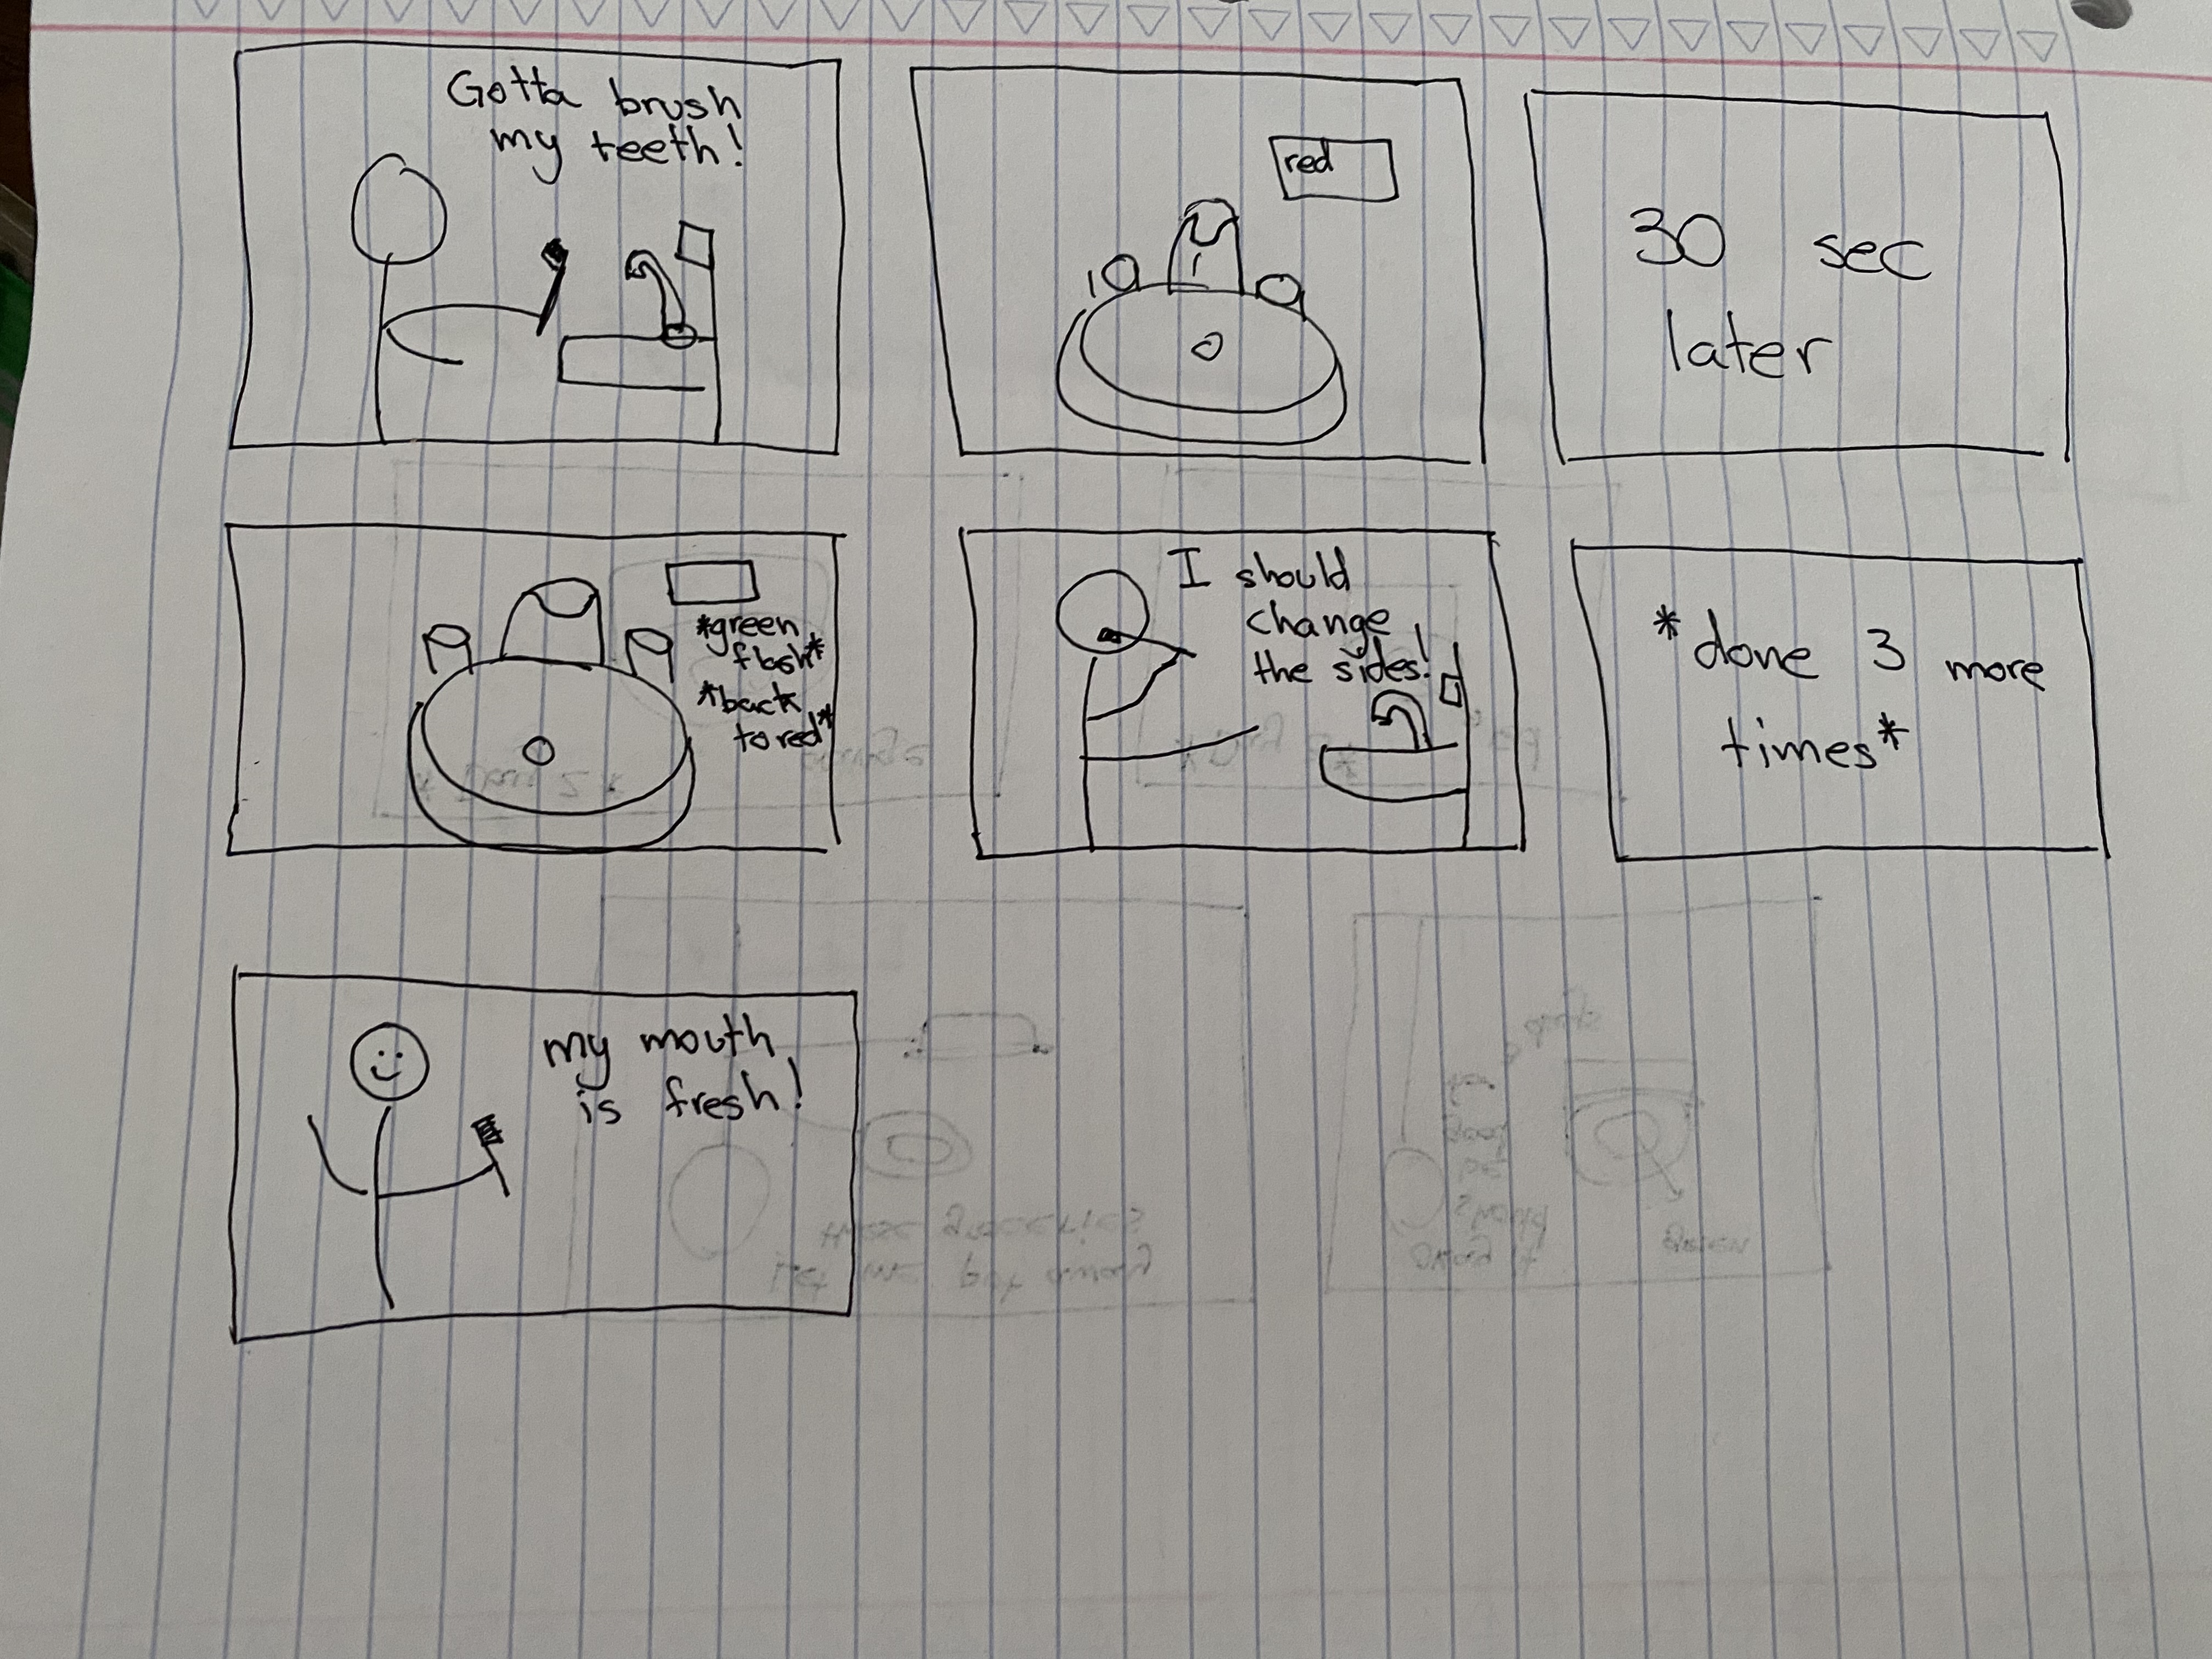 Gotta brush
my teeth!
red
30 sec
later
*green
flash*
*back
to red*
I should
change
the sides!
*done 3 more
times*
my mouth
is fresh!